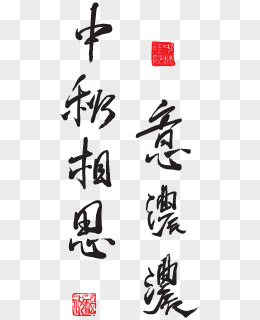 中秋相思
意濃濃